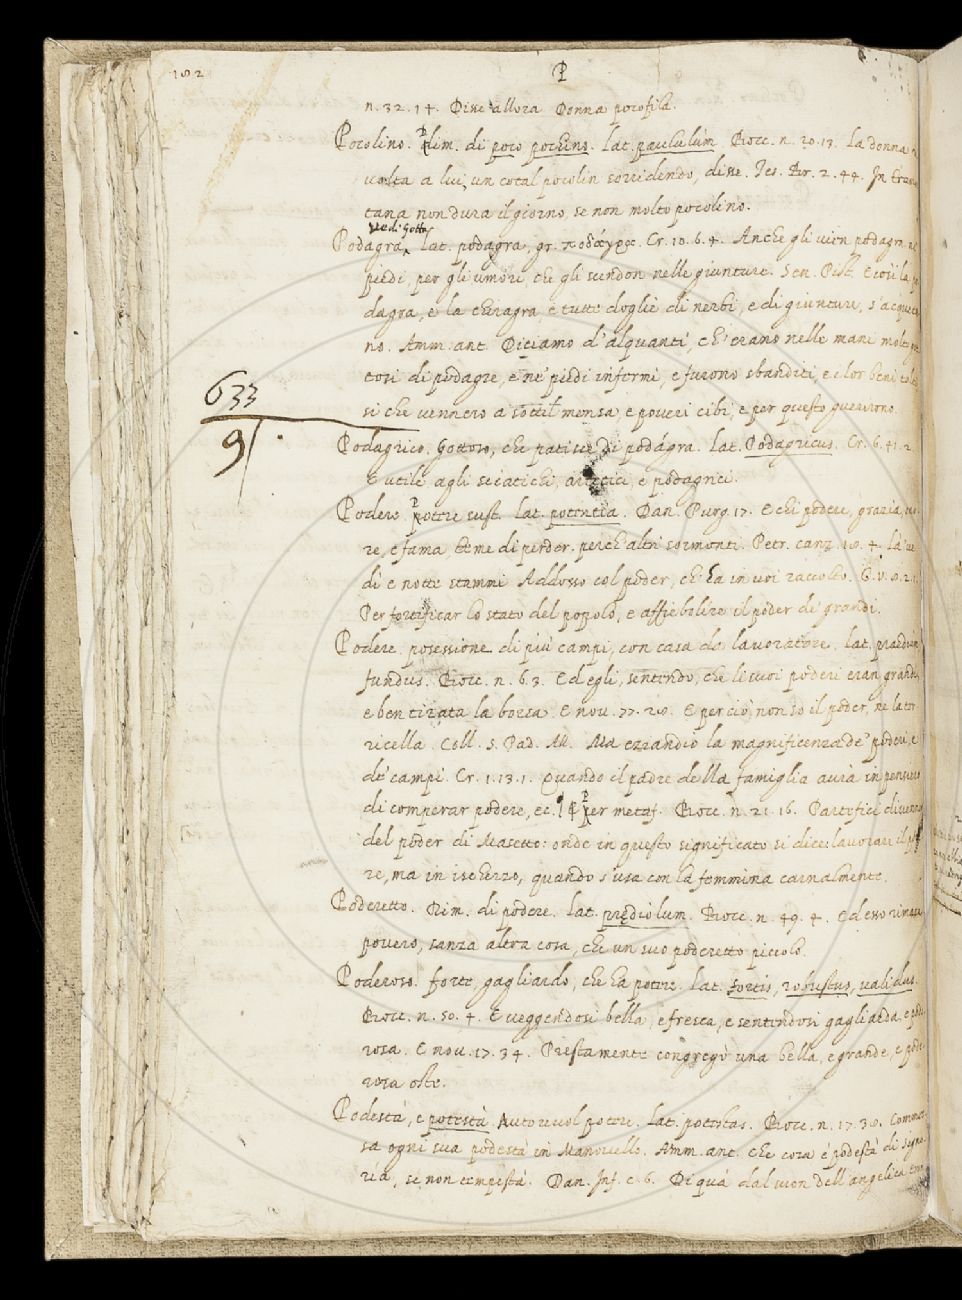 182
P
n. 32. 14. Disse allora Donna pocofila.
Pocolino. Dim. di poco pochino. Lat. paululum. Bocc. n. 20. 13. La donna
volta a lui, un cotal pocolin sorridendo, disse. Tes. Br. 2. 44. In tramon
tana non dura il giorno, se non molto pocolino.
vedi Gotta
Podagra, Lat. podagra, gr. ποδάγρα. Cr. 10. 6. 4. Anche gli vien podagra ne
piedi, per gli umori, che gli scendon nelle giunture. Sen. Pist. E così la po
dagra, e la chiragra, e tutte doglie di nerbi, e di giunture, s'acqueta
no. Amm. ant. Diciamo d'alquanti, ch'erano nelle mani molto
tosi di podagre, e ne' piedi infermi, e furono sbanditi, e i lor beni
si che vennero a sottil mensa, e poveri cibi, e per questo guerirono.
633
9
Podagrico. Gottoso, che patisce di podagra. Lat. Podagricus. Cr. 6. 41. 2.
E utile agli sciatichi, artetici, e podagrici.
Podere. potere sust. Lat. potentia. Dan. Purg. 17. E chi podere, grazia, ono
re, e fama, teme di perder, perch'altri sormonti. Petr. canz. 18. 4. La ve
di e notte stammi Addosso col poder, ch'ha in voi raccolto. G. V. 8. 2. 1.
Per fortificar lo stato del popolo, e affiebolire il poder de' grandi.
Podere. posessione di più campi, con casa da lavoratore. Lat. praedium
fundus. Bocc. n. 63. Ed egli, sentendo, che li suoi poderi eran grandi,
e ben tirata la borsa. E nov. 77. 28. E perciò non so il poder, ne la tor
ricella. Coll. S. Pad. M. Ma eziandio la magnificenza de' poderi, e
de' campi. Cr. 1. 13. 1. Quando il padre della famiglia avrà in pensiero
di comperar podere, ec. ¶ per metaf. Bocc. n. 21. 16. Partefici divennero
del poder di Masetto: onde in questo significato si dice: lavorare il pode
re, ma in ischerzo, quando s'usa con la femmina carnalmente.
Poderetto. Dim. di podere. Lat. prediolum. Bocc. n. 49. 4. Ed esso rimase
povero, sanza altra cosa, che un suo poderetto piccolo.
Poderoso. forte, gagliardo, che ha potere. Lat. fortis, robustus, validus.
Bocc. n. 50. 4. E veggendosi bella, e fresca, e sentendosi gagliarda, e pode
rosa. E nov. 17. 34. Prestamente congregò una bella, e grande, e pode
rosa oste.
Podestà, e potestà. Autorevol potere. Lat. potestas. Bocc. n. 17. 30. Commes
sa ogni sua podestà in Manovello. Amm. ant. Che cosa è podestà di signo
ria, se non tempestà. Dan. Inf. c. 6. Di quà dal suon dell'angelica